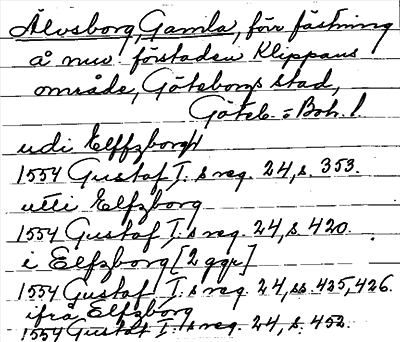 Älvsborg, Gamla, förr fästning
å nuv. förstaden Klippans
område, Göteborgs stad,
Göteb. o Boh. l.
udi Elffzborg
1554 Gustaf I:s reg. 24, s. 353.
utti Elfzborg
1554 Gustaf I:s reg. 24, s. 420.
i Elfzborg [2 ggr]
1554 Gustaf I:s reg. 24, ss. 425, 426.
ifrå Elfzborg
1554 Gustaf I:s reg. 24, s. 452.